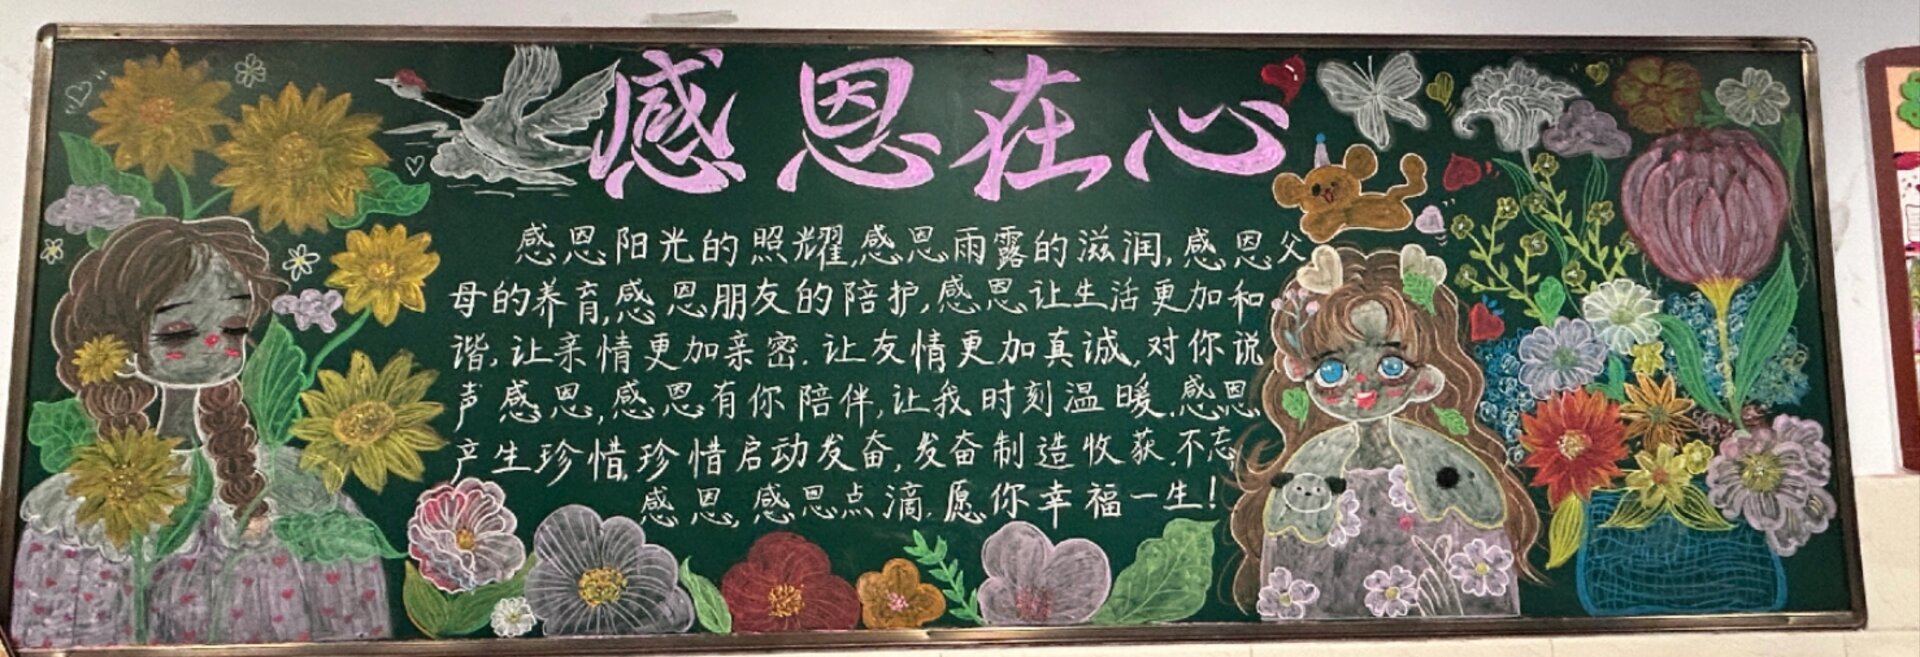 感恩在心
感恩阳光的照耀,感恩雨露的滋润,感恩父
母的养育,感恩朋友的陪护,感恩让生活更加和
谐,让亲情更加亲密.让友情更加真诚,对你说
声感恩,感恩有你陪伴,让我时刻温暖.感恩
产生珍惜,珍惜启动发奋,发奋制造收获.不忘
感恩,感恩点滴.愿你幸福一生!